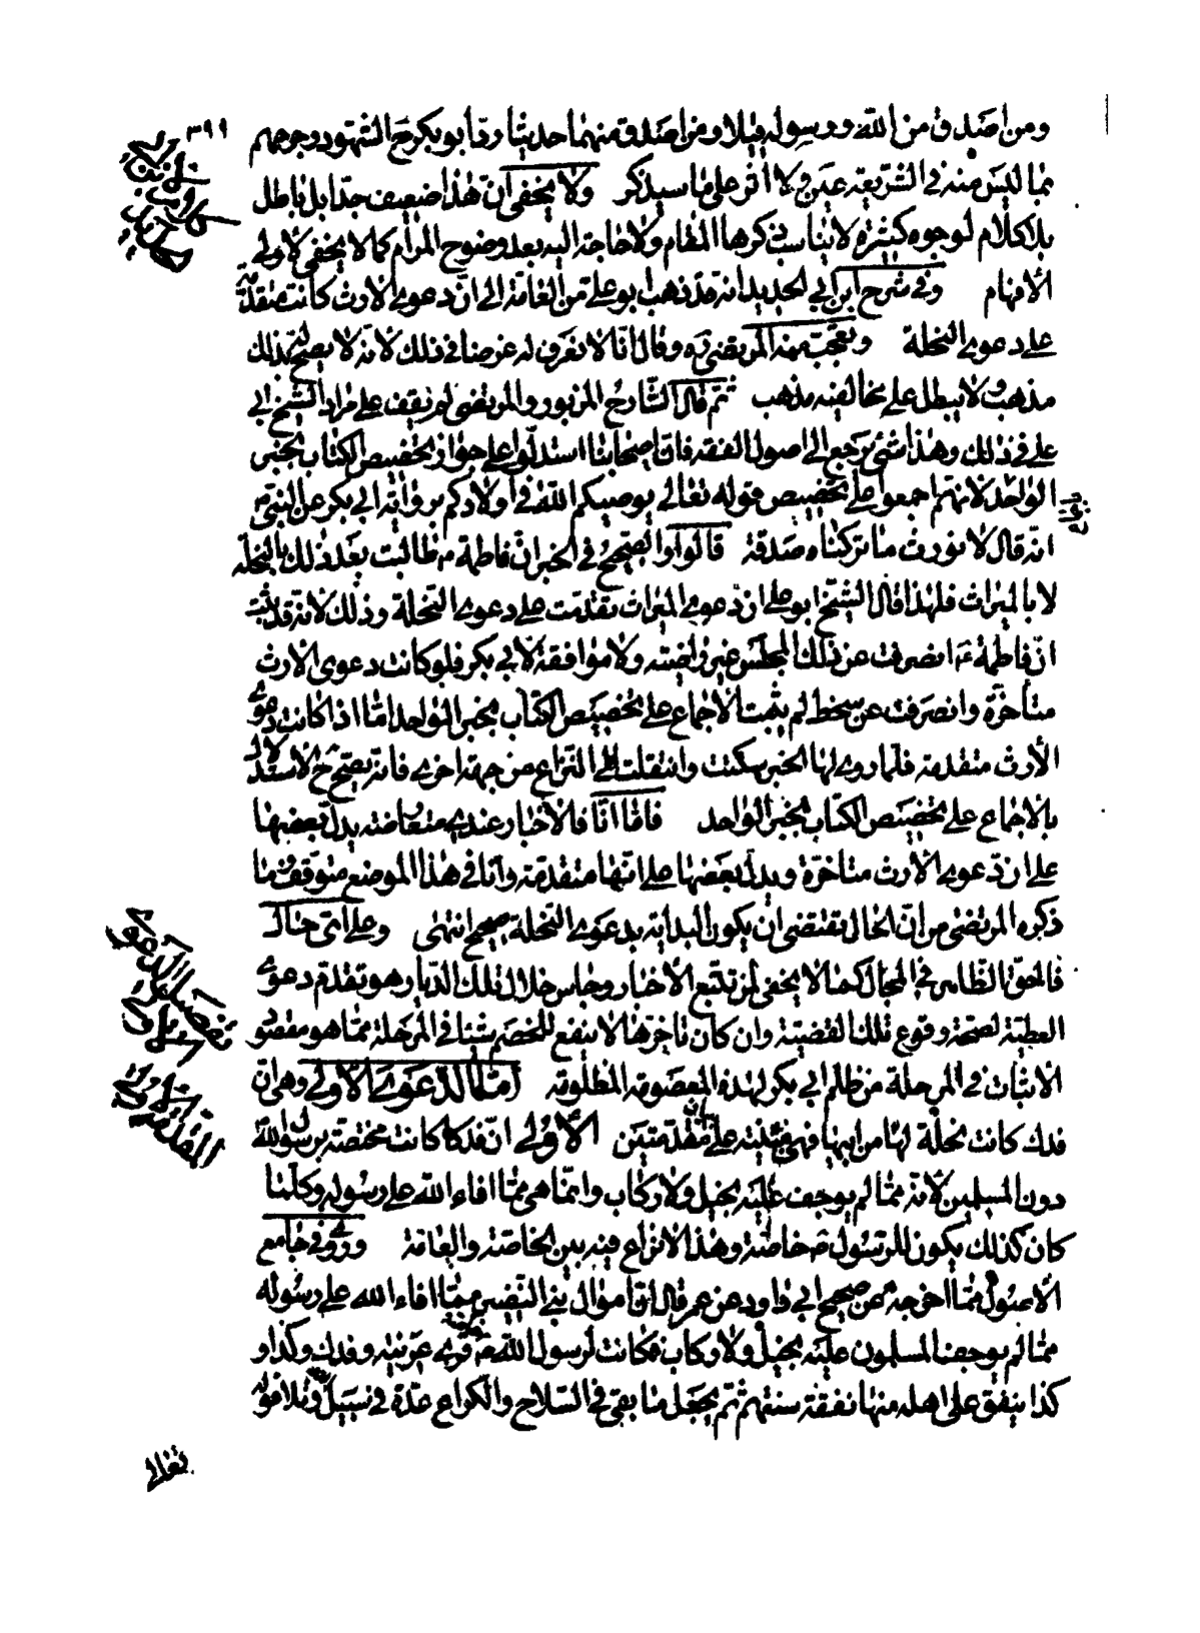 ٣٩٩
ومن اصدق من الله ورسوله قيلا ومن اصدق منهما حديثا ردّ ابو بكر مع الشهود وجوههم
مما ليس منه في الشريعة عين ولا اثر على ما سيذكر ولا يخفى انّ هذا ضعيف جدّا بل باطل
بلا كلام لوجوه كثيرة لا يناسب ذكرها المقام ولا حاجة اليه بعد وضوح المرام كما لا يخفى لاولى
الأفهام وفى شرح ابن ابي الحديد انه قد ذهب ابو على من العامّة الى انّ دعوى الارث كانت متقدّمة
على دعوى النحلة وتعجّب منه المرتضى ره وقال انّا لا نعرف له غرضا في ذلك لانّه لا يصحّ له بذلك
مذهب ولا يبطل على مخالفيه مذهب ثمّ قال الشارح المزبور والمرتضى لم يقف على مراد الشيخ ابي
على في ذلك وهذا شئ يرجع الى اصول الفقه فانّ اصحابنا استدلّوا على جواز تخصيص الكتاب بخبر
الواحد لانهم اجمعوا على تخصيص قوله تعالى يوصيكم الله في اولادكم برواية ابي بكر عن النبيّ ص
انه قال لا نورث ما تركناه صدقة قالوا والصّحيح في الخبر انّ فاطمة ع طالبت بعد ذلك بالنحلة
لا بالميراث فلهذا قال الشيخ ابو على ان دعوى الميراث تقدّمت على دعوى النّحلة وذلك لانه قد ثبت
انّ فاطمة ع انصرفت عن ذلك المجلس غير راضية ولا موافقة لابي بكر فلو كانت دعوى الارث
متأخرة وانصرفت عن سخط لم يثبت الاجماع على تخصيص الكتاب بخبر الواحد امّا اذا كانت دعوى
الأرث متقدمة فلما روى لها الخبر سكتت وانتقلت الى النزاع من جهة اخرى فانه يصحّ ح الاستدلال
بالاجماع على تخصيص الكتاب بخبر الواحد فامّا انّا فالأخبار عندى متعارضة يدلّ بعضها
على ان دعوى الأرث متاخرة ويدلّ بعضها على انّها متقدمة وانا في هذا الموضع متوقف وما
ذكره المرتضى من انّ الحال تقتضى ان يكون البداية بدعوى النّحلة صحيح انتهى وعلى اىّ حال
فالحق الظاهر في المجال كما لا يخفى لمن تتبّع الأخبار وجاس خلال تلك الديار هو تقدّم دعوى
العطيّة لصحة وقوع تلك القضيّة وان كان تاخرها لا ينفع للخصم شيئا في المرحلة ممّا هو مقصود
الاثبات في المرحلة من ظلم ابي بكر لهذه المعصومة المظلومة امّا الدعوى الاولى وهى ان
فدك كانت نحلة لها من ابيها فهى مبنيّة على مقدّمتين الأولى انّ فدكا كانت مختصّة برسول الله
دون المسلمين لانّه ممّا لم يوجف عليه بخيل ولا ركاب وانمّا هى ممّا افاء الله على رسوله وكلّما
كان كذلك يكون للرّسول ص خاصّة وهذا لا نزاع فيه بين الخاصّة والعامّة وروى في جامع
الأصول ممّا اخرجه من صحيح ابي داود عن عمر قال انّ اموال بني النضير ممّا افاء الله على رسوله
ممّا لم يوجف المسلمون عليه بخيل ولا ركاب فكانت لرسول الله ص خاصة قرى عرينة وفدك وكذا و
كذا ينفق على اهله منها نفقة سنتهم ثمّ يجعل ما بقى في السّلاح والكراع عدّة في سبيل الله وتلا قوله
تعالى